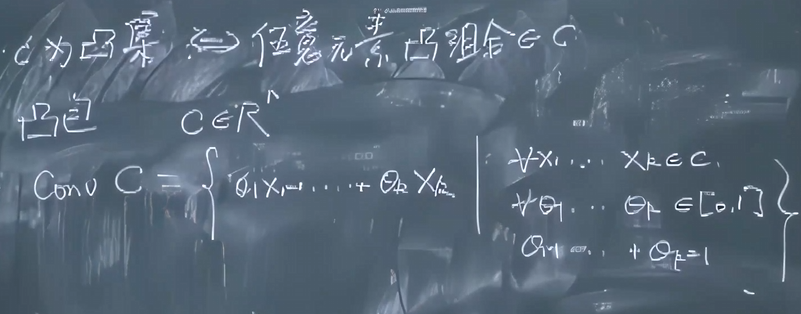 C为凸集 ⇔ 任意元素凸组合∈C
凸包 C∈Rⁿ
Conv C = { θ₁x₁+....+θₖxₖ | ∀x₁.... xₖ∈C,
∀θ₁... θₖ∈[0,1]
θ₁+....+θₖ=1 }